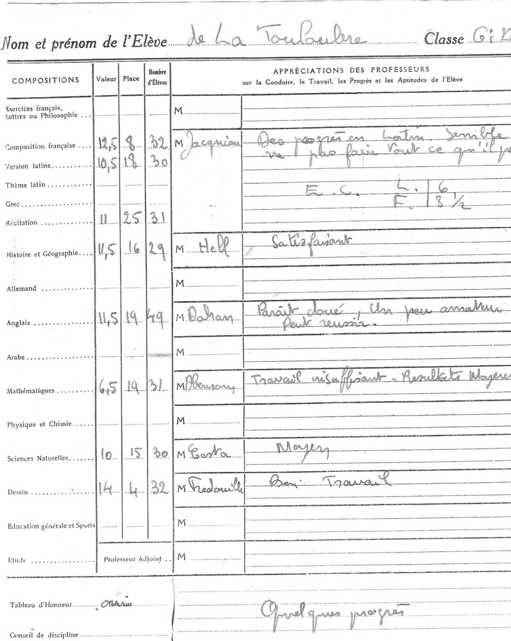 Nom et prénom de l'Elève de La Touloubre Classe G:
COMPOSITIONS Valeur Place Nombre d'Élèves APPRÉCIATIONS DES PROFESSEURS
sur la Conduite, le Travail, les Progrès et les Aptitudes de l'Elève
Exercices français, Lettres ou Philosophie ... M
Composition française .... 12,5 8 32 M Des progrès en Latin. Semble
Version latine ........... 10,5 18 30 ne plus faire tout ce qu'il
Thème latin ........... E.C. L. 6
Grec ........... F. 8 1/2
Récitation ........... 11 25 31
Histoire et Géographie.... 11,5 16 29 M Hell Satisfaisant
Allemand ........... M
Anglais ........... 11,5 19 49 M Dahan Paraît doué, Un peu amateur
Peut réussir.
Arabe ........... M
Mathématiques .......... 6,5 19 31 M Travail insuffisant - Résultats Moyens
Physique et Chimie....... M
Sciences Naturelles....... 10 15 30 M Costa Moyen
Dessin ........... 14 4 32 M Fredouille Bon Travail
Education générale et Sports M
Etude ........... Professeur Adjoint .. M
Tableau d'Honneur
Quelques progrès
Conseil de discipline